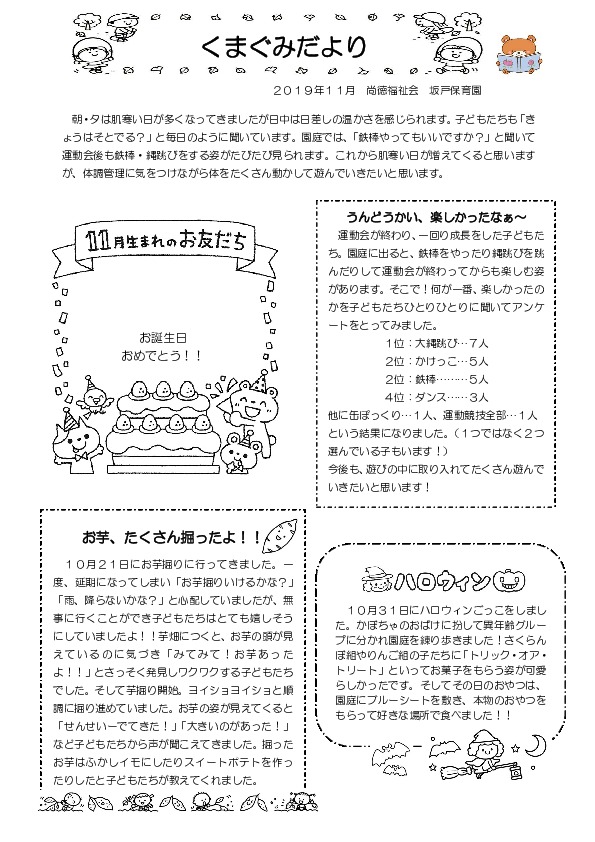 くまぐみだより
2019年11月　尚徳福祉会　坂戸保育園
朝・夕は肌寒い日が多くなってきましたが日中は日差しの温かさを感じられます。子どもたちも「き
ょうはそとでる？」と毎日のように聞いています。園庭では、「鉄棒やってもいいですか？」と聞いて
運動会後も鉄棒・縄跳びをする姿がたびたび見られます。これから肌寒い日が増えてくると思います
が、体調管理に気をつけながら体をたくさん動かして遊んでいきたいと思います。
11月生まれのお友だち
お誕生日
おめでとう！！
うんどうかい、楽しかったなぁ～
運動会が終わり、一回り成長をした子どもた
ち。園庭に出ると、鉄棒をやったり縄跳びを跳
んだりして運動会が終わってからも楽しむ姿
があります。そこで！何が一番、楽しかったの
かを子どもたちひとりひとりに聞いてアンケ
ートをとってみました。
1位：大縄跳び…7人
2位：かけっこ…5人
2位：鉄棒………5人
4位：ダンス……3人
他に缶ぽっくり…1人、運動競技全部…1人
という結果になりました。（1つではなく2つ
選んでいる子もいます！）
今後も、遊びの中に取り入れてたくさん遊んで
いきたいと思います！
お芋、たくさん掘ったよ！！
10月21日にお芋掘りに行ってきました。一
度、延期になってしまい「お芋掘りいけるかな？」
「雨、降らないかな？」と心配していましたが、無
事に行くことができ子どもたちはとても嬉しそう
にしていましたよ！！芋畑につくと、お芋の頭が見
えているのに気づき「みてみて！お芋あった
よ！！」とさっそく発見しワクワクする子どもたち
でした。そして芋掘り開始。ヨイショヨイショと順
調に掘り進めていました。お芋の姿が見えてくると
「せんせいーでてきた！」「大きいのがあった！」
など子どもたちから声が聞こえてきました。掘った
お芋はふかしイモにしたりスイートポテトを作っ
たりしたと子どもたちが教えてくれました。
ハロウィン
10月31日にハロウィンごっこをしまし
た。かぼちゃのおばけに扮して異年齢グルー
プに分かれ園庭を練り歩きました！さくらん
ぼ組やりんご組の子たちに「トリック・オア・
トリート」といってお菓子をもらう姿が可愛
らしかったです。そしてその日のおやつは、
園庭にブルーシートを敷き、本物のおやつを
もらって好きな場所で食べました！！